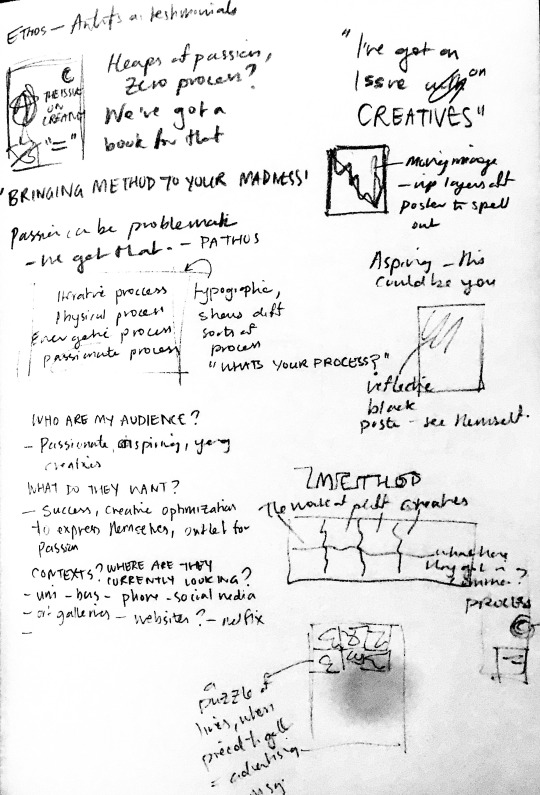 ETHOS - Artists as testimonials
THE ISSUE
ON
CREATIV
"="
Heaps of passion,
Zero process?
We've got a
book for that
"I've got an
Issue with on
CREATIVES"
'BRINGING METHOD TO YOUR MADNESS'
Moving image
- rip layers off
poster to spell
out
Passion can be problematic
- we get that. - PATHOS
Aspiring - this
could be you
Iterative process
Physical process
Energetic process
passionate process
typographic,
shows diff
sorts of
process
"WHATS YOUR PROCESS?"
reflective
black
poster - see themself.
WHO ARE MY AUDIENCE?
- Passionate, aspiring, young
creatives
WHAT DO THEY WANT?
- Success, creative optimization
to express themselves, outlet for
passion
CONTEXTS? WHERE ARE THEY
CURRENTLY LOOKING?
- uni - bus - phone - social media
- art galleries - websites? - netflix
-
METHOD
The work of diff creatives
what have
they got in
common?
PROCESS
a
puzzle of
lines, when
pieced together
= advertising